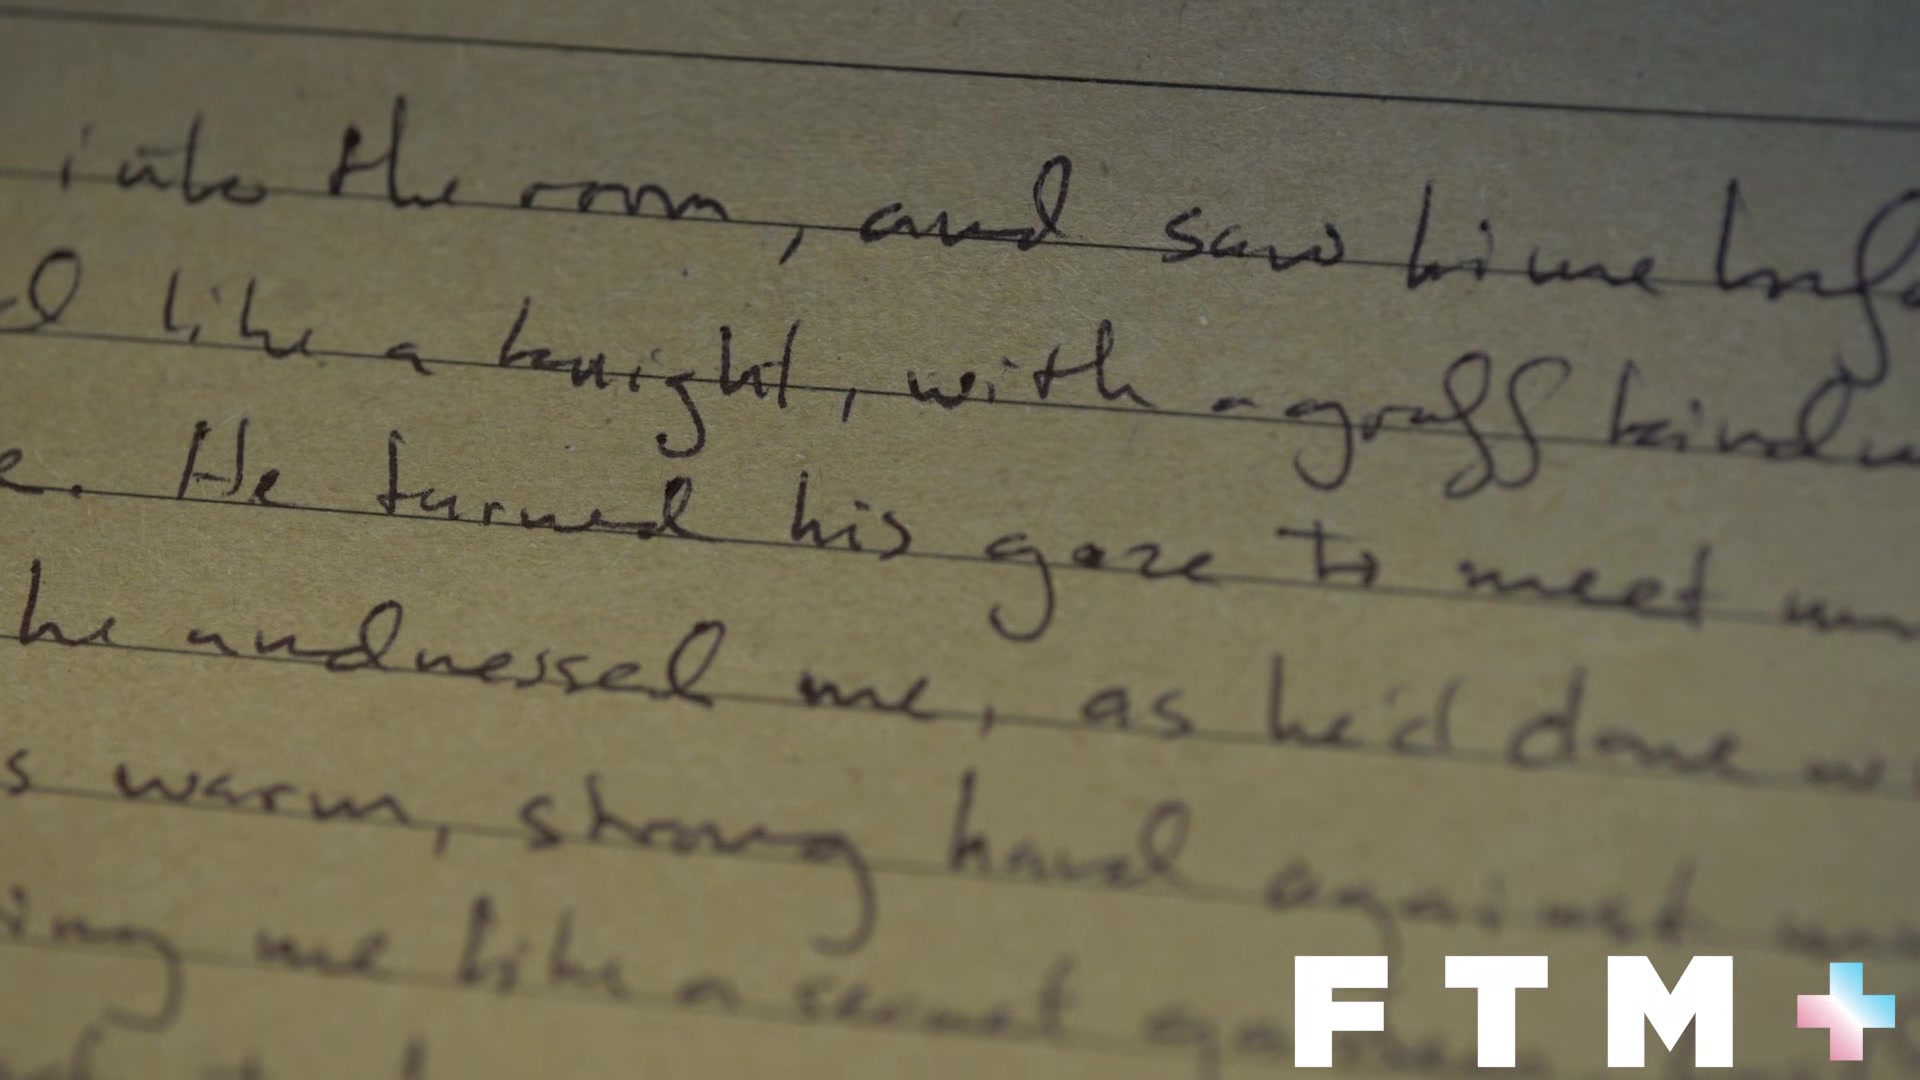 into the room, and saw him
like a knight, with a gruff
e. He turned his gaze to meet
he undressed me, as he'd done
s warm, strong hand against
ing me like a secret
FTM+